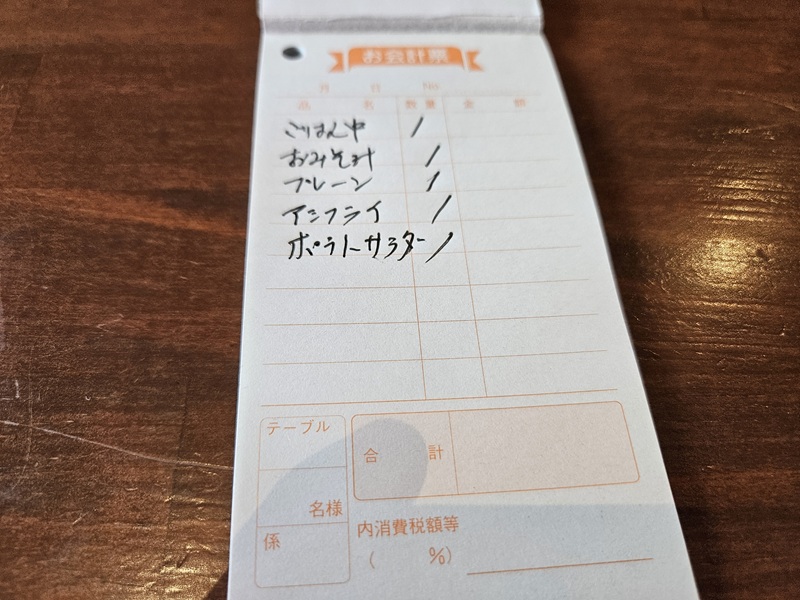 お会計票
月 日 No.
品 名 数量 金 額
ごはん中 1
おみそ汁 1
プレーン 1
アジフライ 1
ポテトサラダー 1
テーブル
名様
係
合 計
内消費税額等
( %)